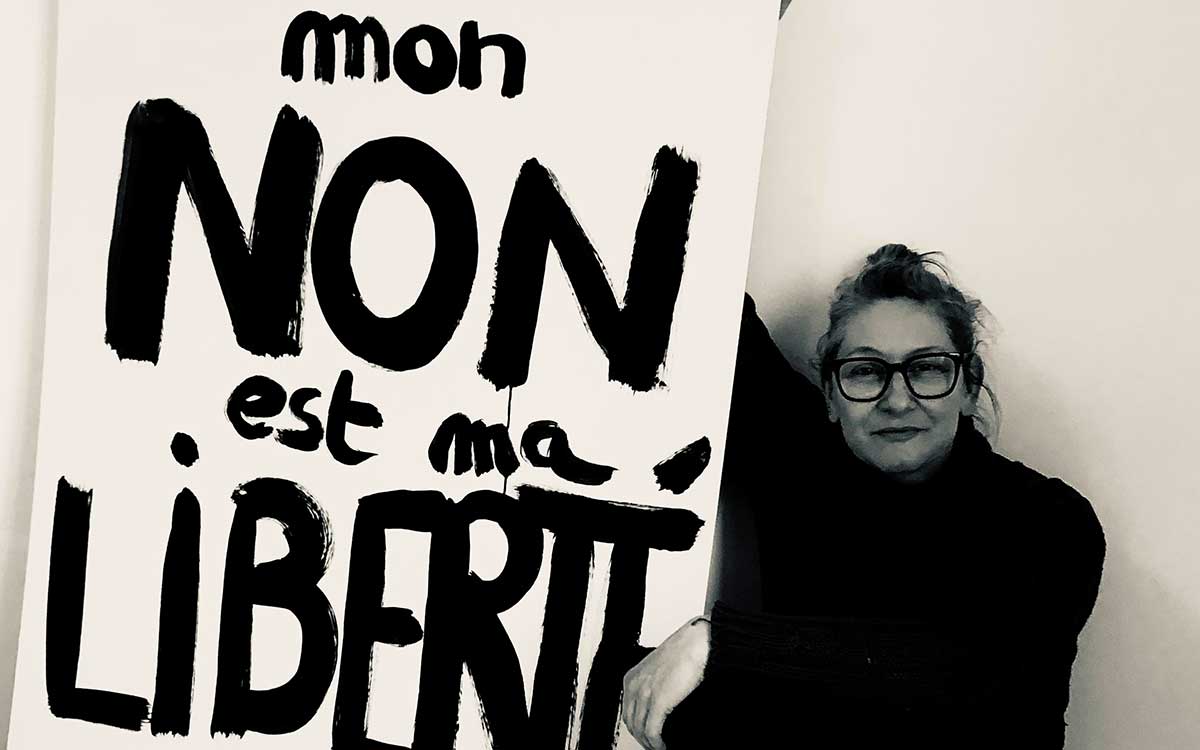 mon
NON
est ma
LiBERTÉ